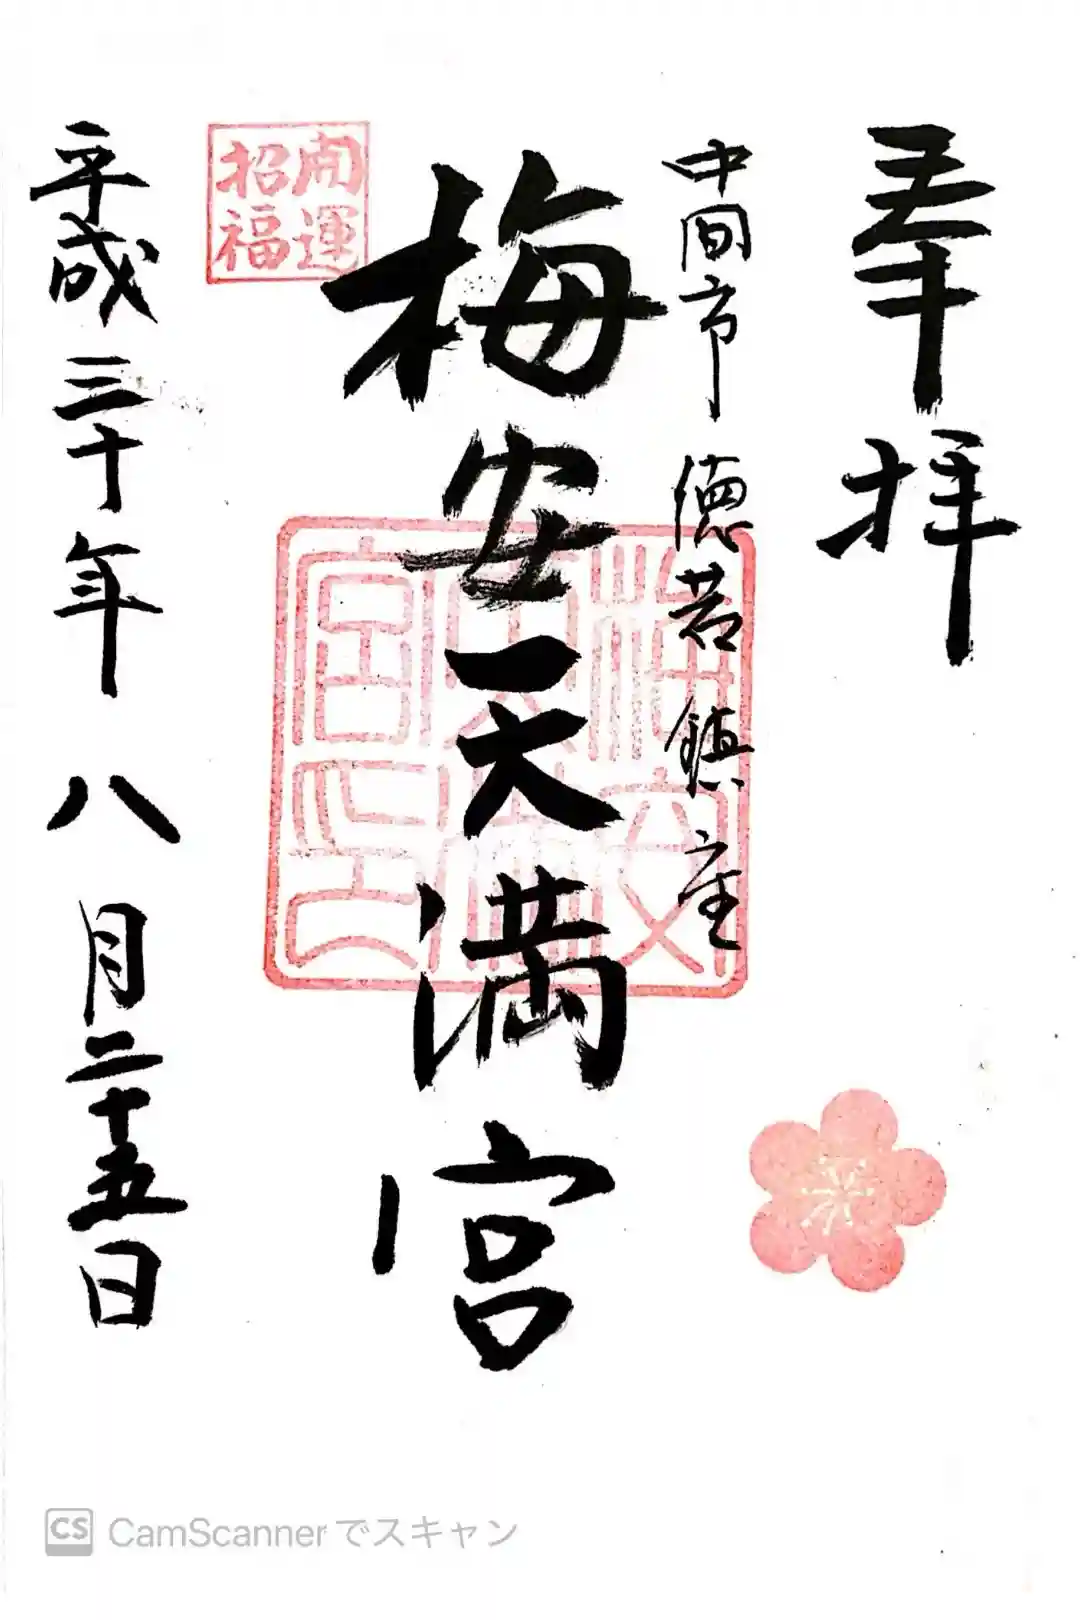 奉拝
中間市 徳若鎮座
梅安天満宮
開運
招福
梅安
天満
宮印
平成三十年 八月二十五日
CS CamScannerでスキャン